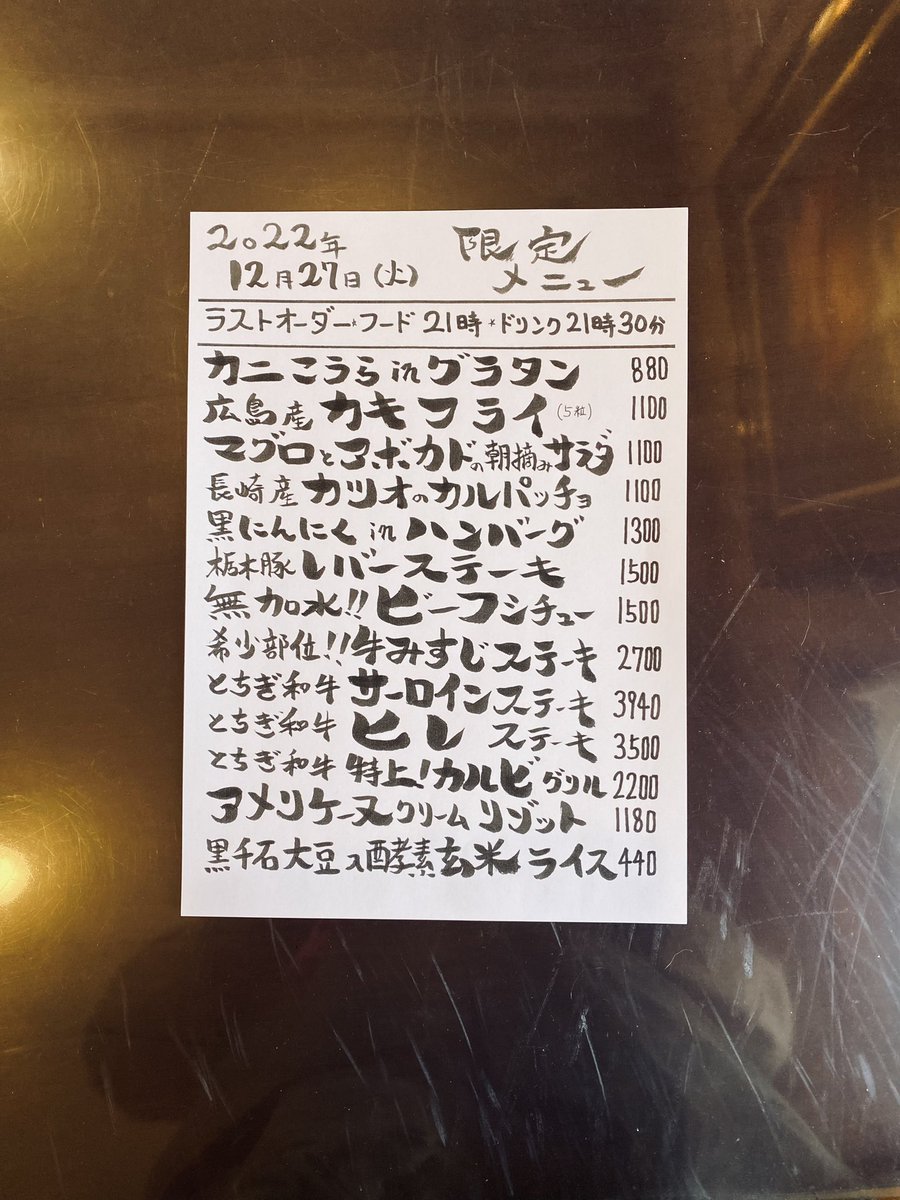 2022年 限定
12月27日(火) メニュー
ラストオーダー*フード 21時 *ドリンク21時30分
カニこうら in グラタン 880
広島産 カキフライ (5粒) 1100
マグロとアボカドの朝摘みサラダ 1100
長崎産 カツオのカルパッチョ 1100
黒にんにく in ハンバーグ 1300
栃木豚 レバーステーキ 1500
無加水!! ビーフシチュー 1500
希少部位!! 牛みすじステーキ 2700
とちぎ和牛 サーロインステーキ 3940
とちぎ和牛 ヒレ ステーキ 3500
とちぎ和牛 特上! カルビグリル 2200
アメリケーヌクリームリゾット 1180
黒千石大豆入酵素玄米ライス 440